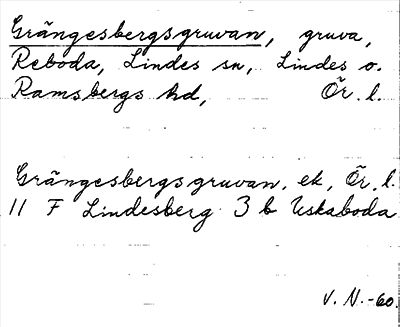 Grängesbergsgruvan, gruva,
Reboda, Lindes sn, Lindes o.
Ramsbergs hd, Ör. l.
Grängesbergsgruvan, ek, Ör. l.
11 F Lindesberg 3 b Uskaboda
V. N. -60.